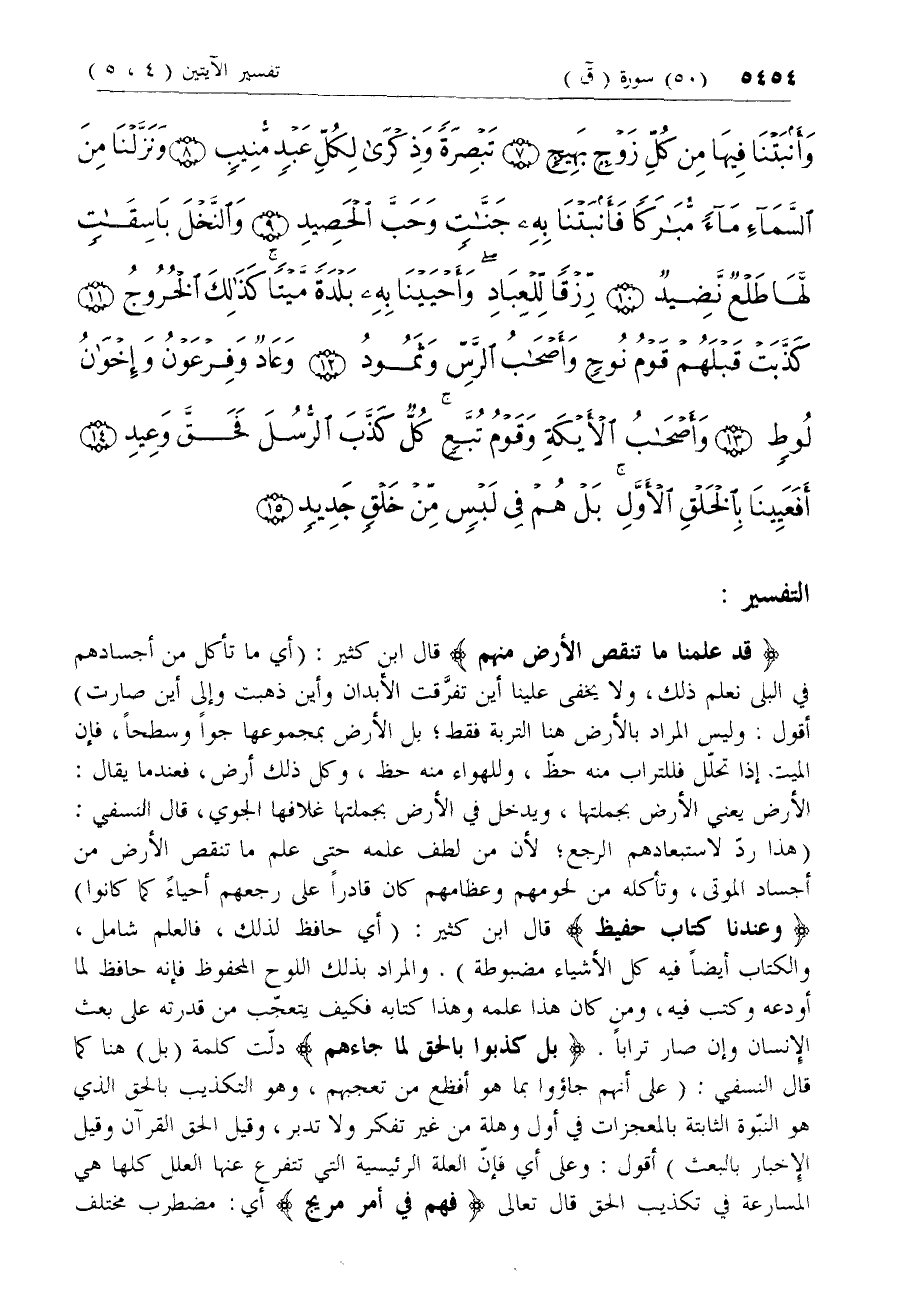 ٥٤٥٤ (٥٠) سورة ( قۤ ) تفسير الآيتين ( ٤ ، ٥ )
وَأَنۢبَتۡنَا فِيهَا مِن كُلِّ زَوۡجِۭ بَهِيجٖ ﴿٧﴾ تَبۡصِرَةٗ وَذِكۡرَىٰ لِكُلِّ عَبۡدٖ مُّنِيبٖ ﴿٨﴾ وَنَزَّلۡنَا مِنَ
ٱلسَّمَآءِ مَآءٗ مُّبَٰرَكٗا فَأَنۢبَتۡنَا بِهِۦ جَنَّٰتٖ وَحَبَّ ٱلۡحَصِيدِ ﴿٩﴾ وَٱلنَّخۡلَ بَاسِقَٰتٖ
لَّهَا طَلۡعٞ نَّضِيدٞ ﴿١٠﴾ رِّزۡقٗا لِّلۡعِبَادِۖ وَأَحۡيَيۡنَا بِهِۦ بَلۡدَةٗ مَّيۡتٗاۚ كَذَٰلِكَ ٱلۡخُرُوجُ ﴿١١﴾
كَذَّبَتۡ قَبۡلَهُمۡ قَوۡمُ نُوحٖ وَأَصۡحَٰبُ ٱلرَّسِّ وَثَمُودُ ﴿١٢﴾ وَعَادٞ وَفِرۡعَوۡنُ وَإِخۡوَٰنُ
لُوطٖ ﴿١٣﴾ وَأَصۡحَٰبُ ٱلۡأَيۡكَةِ وَقَوۡمُ تُبَّعٖۚ كُلّٞ كَذَّبَ ٱلرُّسُلَ فَحَقَّ وَعِيدِ ﴿١٤﴾
أَفَعَيِينَا بِٱلۡخَلۡقِ ٱلۡأَوَّلِۚ بَلۡ هُمۡ فِي لَبۡسٖ مِّنۡ خَلۡقٖ جَدِيدٖ ﴿١٥﴾
التفسير :
﴿ قد علمنا ما تنقص الأرض منهم ﴾ قال ابن كثير : (أي ما تأكل من أجسادهم
في البلى نعلم ذلك، ولا يخفى علينا أين تفرَّقت الأبدان وأين ذهبت وإلى أين صارت)
أقول : وليس المراد بالأرض هنا التربة فقط؛ بل الأرض بمجموعها جواً وسطحاً، فإن
الميت. إذا تحلّل فللتراب منه حظّ ، وللهواء منه حظ ، وكل ذلك أرض، فعندما يقال :
الأرض يعني الأرض بجملتها ، ويدخل في الأرض بجملتها غلافها الجوي، قال النسفي :
(هذا ردّ لاستبعادهم الرجع؛ لأن من لطف علمه حتى علم ما تنقص الأرض من
أجساد الموتى ، وتأكله من لحومهم وعظامهم كان قادراً على رجعهم أحياءً كما كانوا)
﴿ وعندنا كتاب حفيظ ﴾ قال ابن كثير : ( أي حافظ لذلك ، فالعلم شامل ،
والكتاب أيضاً فيه كل الأشياء مضبوطة ) . والمراد بذلك اللوح المحفوظ فإنه حافظ لما
أودعه وكتب فيه، ومن كان هذا علمه وهذا كتابه فكيف يتعجّب من قدرته على بعث
الإنسان وإن صار تراباً . ﴿ بل كذبوا بالحق لما جاءهم ﴾ دلّت كلمة (بل) هنا كما
قال النسفي : ( على أنهم جاؤوا بما هو أفظع من تعجبهم ، وهو التكذيب بالحق الذي
هو النبّوة الثابتة بالمعجزات في أول وهلة من غير تفكر ولا تدبر ، وقيل الحق القرآن وقيل
الإخبار بالبعث ) أقول : وعلى أي فإنّ العلة الرئيسية التي تتفرع عنها العلل كلها هي
المسارعة في تكذيب الحق قال تعالى ﴿ فهم في أمر مريج ﴾ أي: مضطرب مختلف